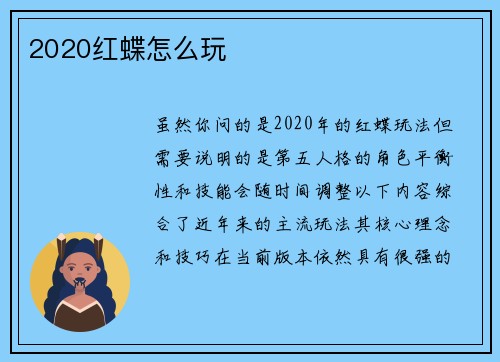 2020红蝶怎么玩
虽然你问的是2020年的红蝶玩法但
需要说明的是第五人格的角色平衡
性和技能会随时间调整以下内容综
合了近年来的主流玩法其核心理念
和技巧在当前版本依然具有很强的